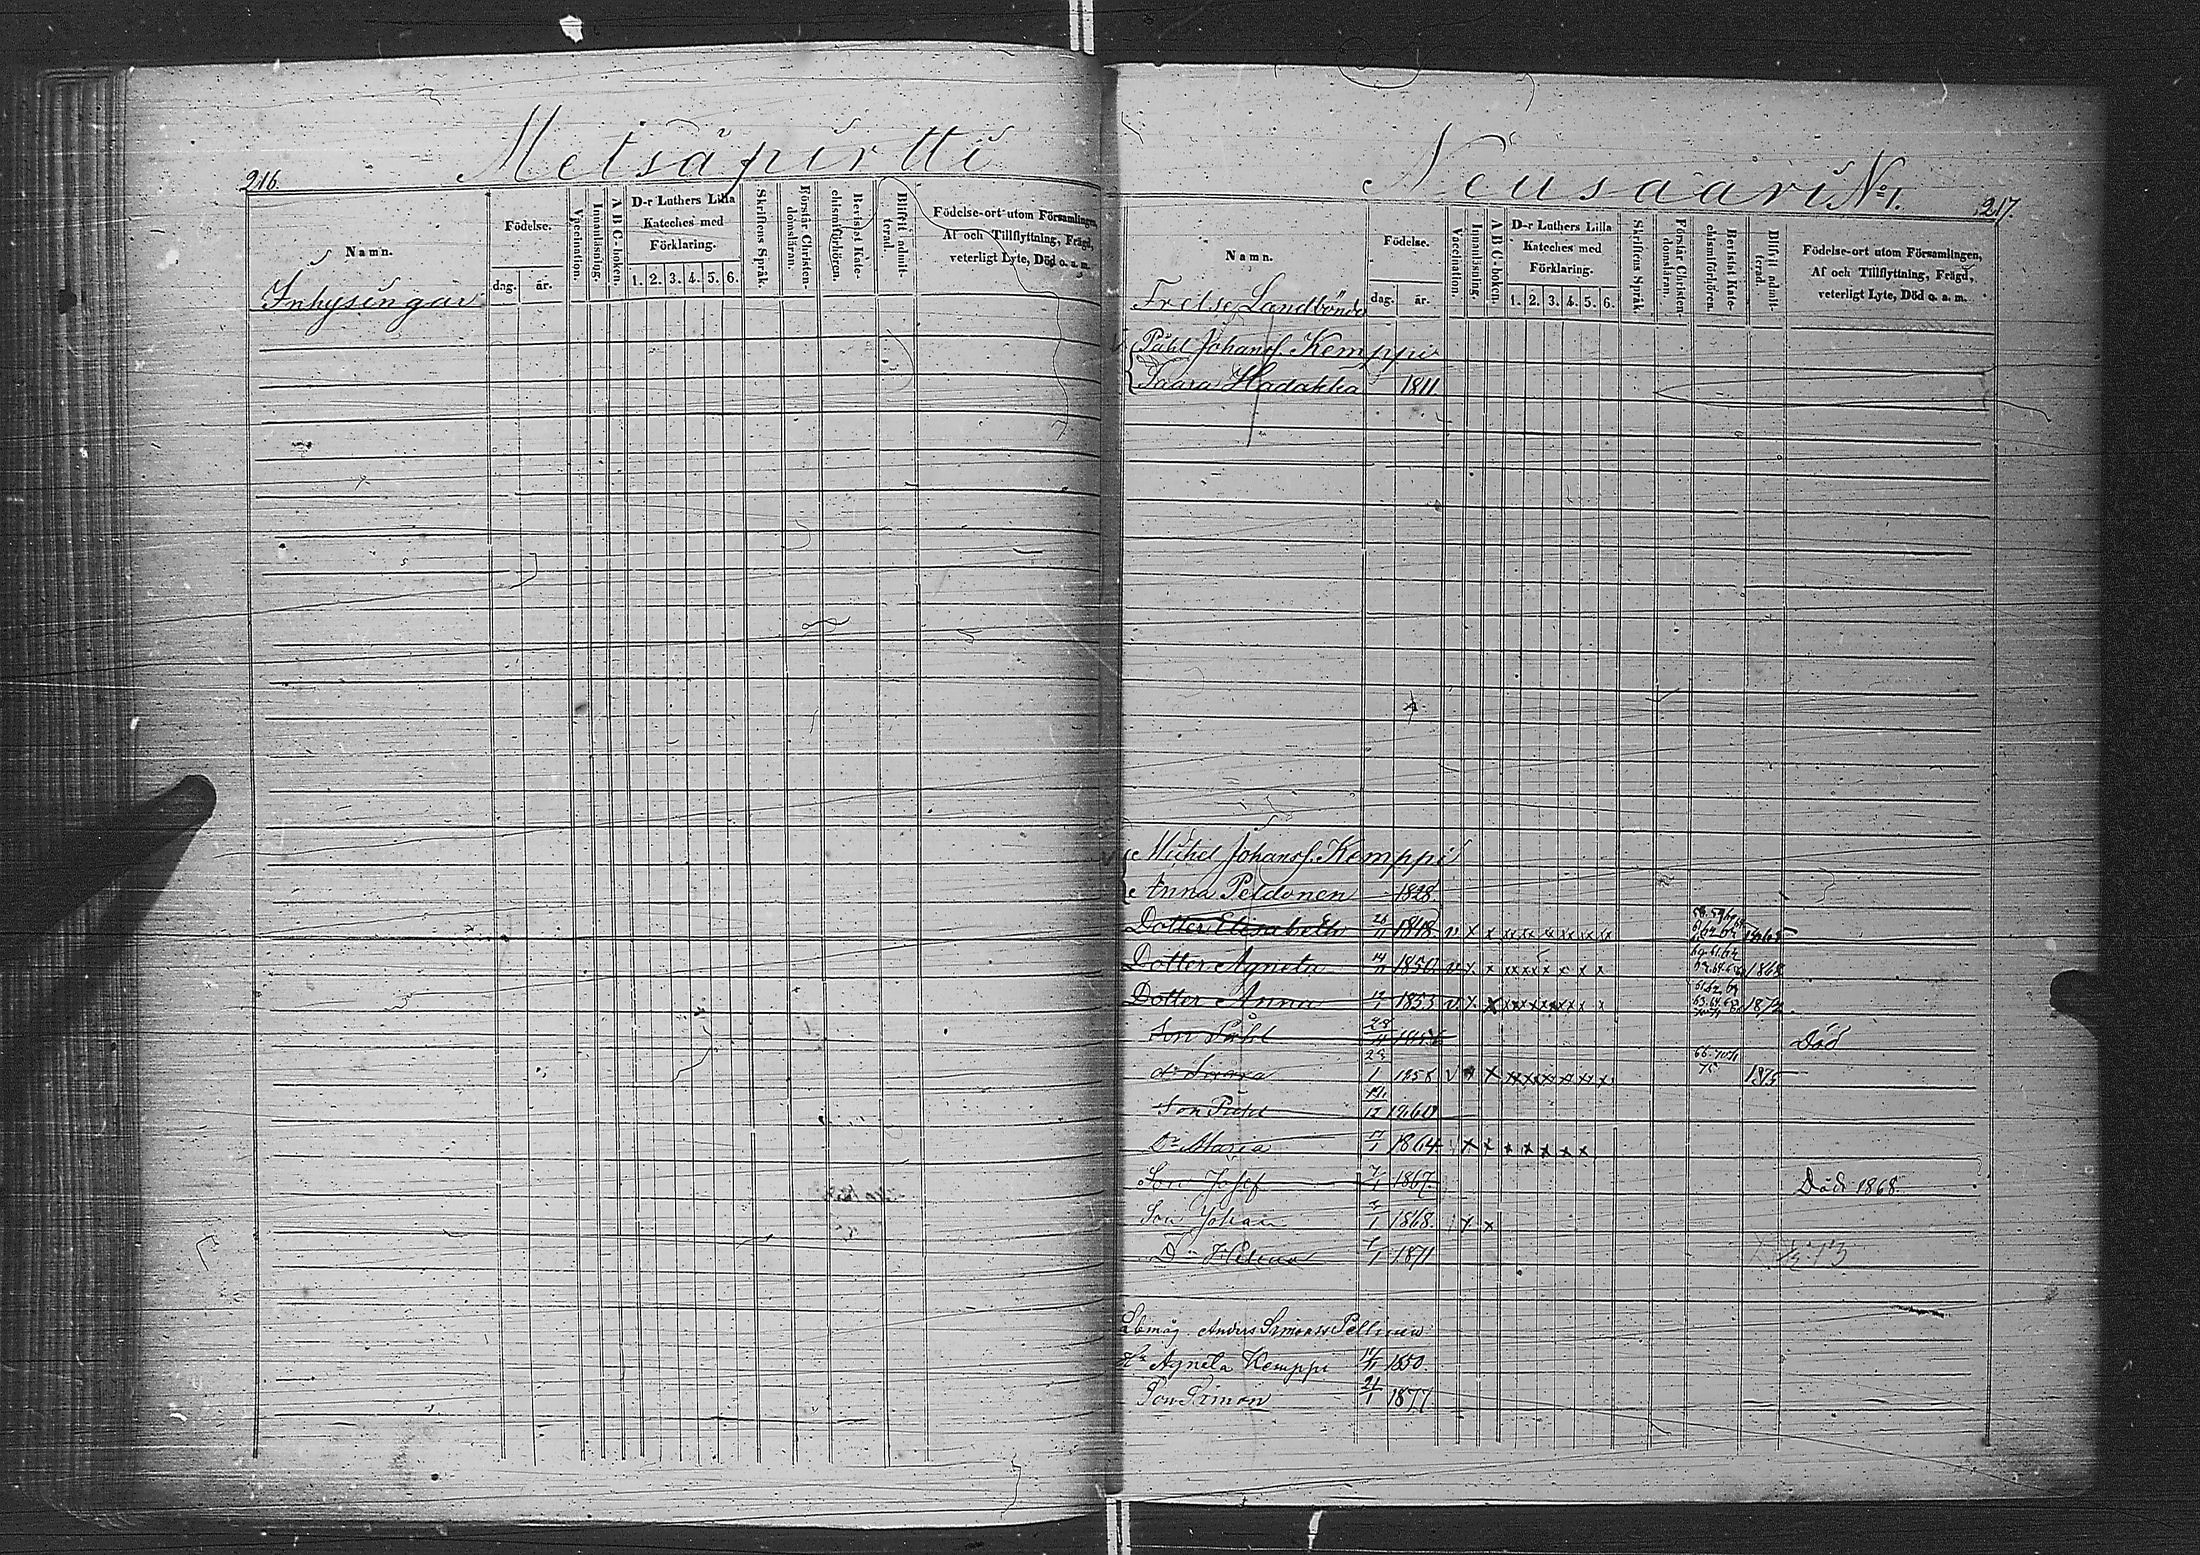 216.
Metsäpirtti
Namn.
Födelse.
dag.
år.
Vaccination.
Innanläsning.
A B C-boken.
D-r Luthers Lilla
Kateches med
Förklaring.
1. 2. 3. 4. 5. 6.
Skriftens Språk.
Förstår Christen-
domsläran.
Bevistat Kate-
chismiförhören.
Blifvit admit-
terad.
Födelse-ort utom Församlingen,
Af och Tillflyttning, Frägd,
veterligt Lyte, Död o. a. m.
Inhysingar
Neusaari No 1.
217.
Namn.
Födelse.
dag.
år.
Vaccination.
Innanläsning.
A B C-boken.
D-r Luthers Lilla
Kateches med
Förklaring.
1. 2. 3. 4. 5. 6.
Skriftens Språk.
Förstår Christen-
domsläran.
Bevistat Kate-
chismiförhören.
Blifvit admit-
terad.
Födelse-ort utom Församlingen,
Af och Tillflyttning, Frägd,
veterligt Lyte, Död o. a. m.
Frälse Landbönder
Påhl Johans. Kemppi
Saara Hadakka 1811.
Michel Johans. Kemppi
Anna Peldonen 1828.
Dotter Elisabeth 1848 v x x x x x x x x 1865
Dotter Agneta 14/11 1850 v x x x x x x x x 1868
Dotter Anna 1853 v x x x x x x x x 1872.
Son Påhl Död
do Saara 23/1 1858 v x x x x x x x x 1875
Son Påhl 12 1860
Dr Maria 1864 x x x x x x x
Son Josef 1867. Död 1868.
Son Johan 1868. x x
Dr Helena 1871
Måg Anders Simonss Pellinen
Hu Agneta Kemppi 14/11 1850.
Son Simon 21/1 1877